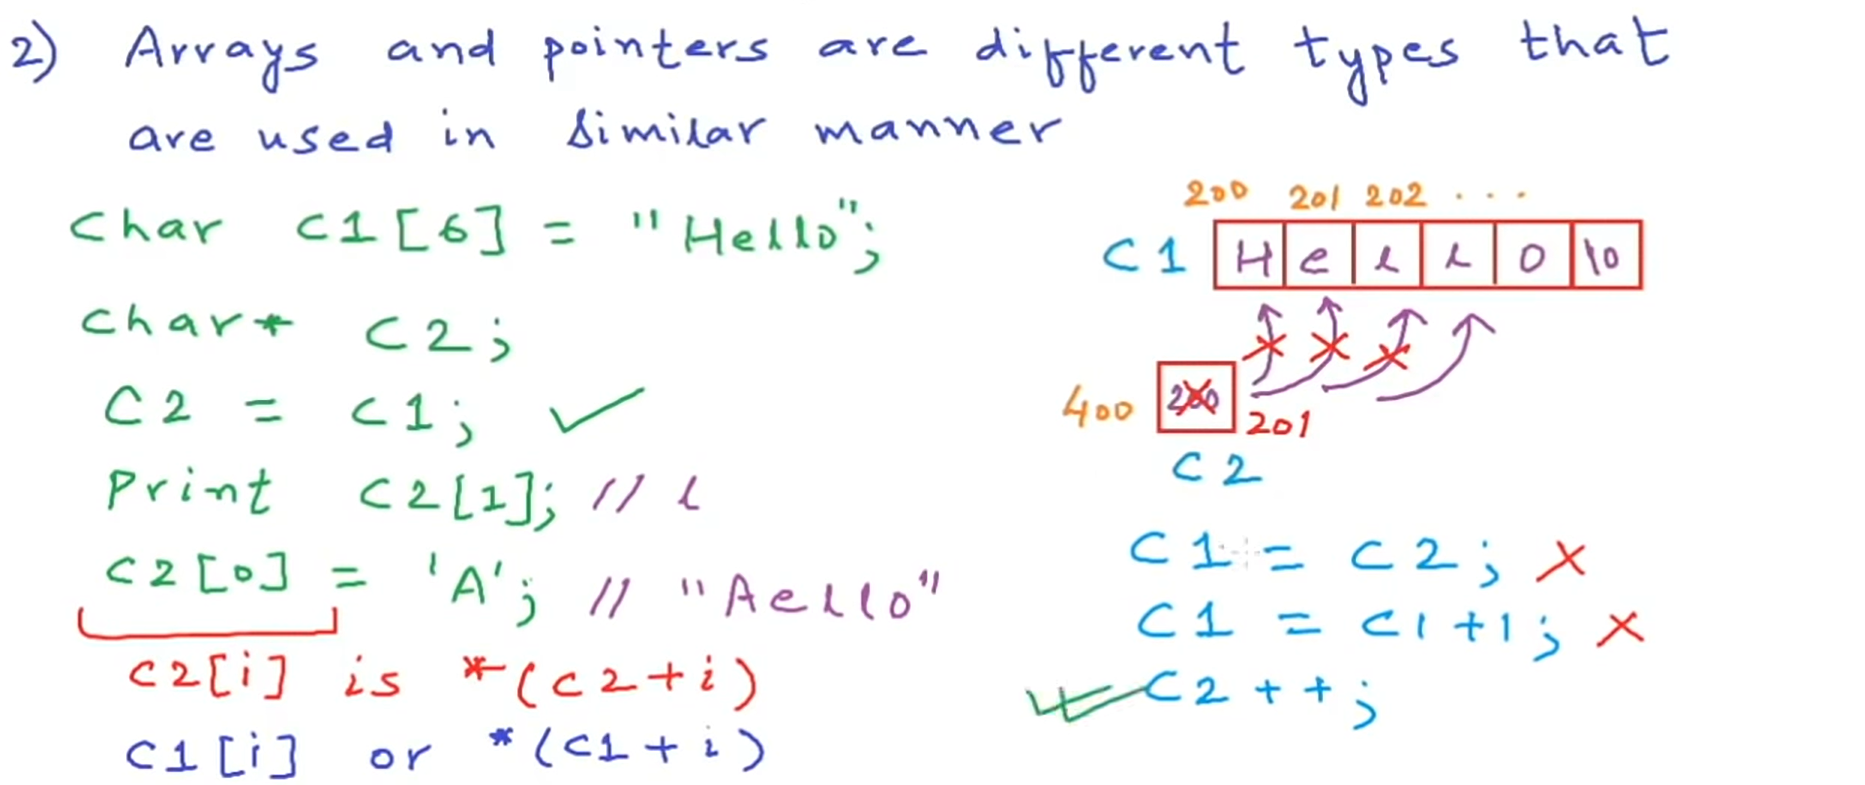 2) Arrays and pointers are different types that
are used in similar manner
Char C1[6] = "Hello";
Char* C2;
C2 = C1; ✓
Print C2[1]; // l
C2[0] = 'A'; // "Aello"
C2[i] is *(C2+i)
C1[i] or *(C1+i)
200 201 202 ...
C1 H e l l o \0
400 200 201
C2
C1 = C2; X
C1 = C1+1; X
✓ C2++;